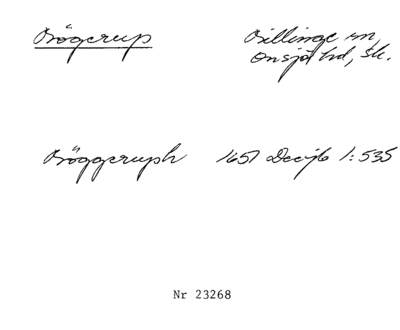 Bögerup
Billinge sn,
Onsjö hd, Sk.
Böggeruph 1651 Decijb 1:535
Nr 23268